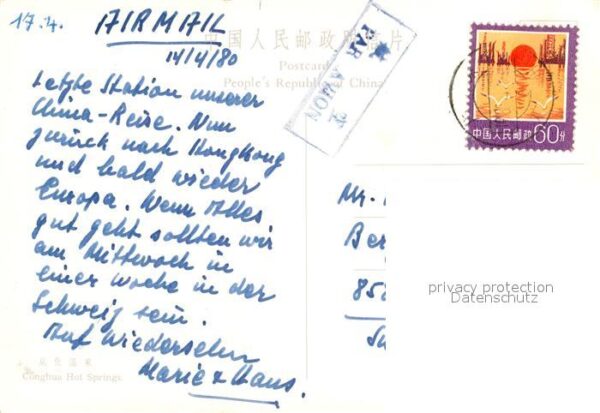 17.4.
AIRMAIL
14/4/80
中国人民邮政明信片
Postcard
People's Republic of China
航空
PAR AVION
中国人民邮政 60分
Letzte Station unserer
China-Reise. Nun
zurück nach Hongkong
und bald wieder
Europa. Wenn Alles
gut geht sollten wir
am Mittwoch in
einer Woche in der
Schweiz sein.
Auf Wiedersehn
Marie & Hans.
从化温泉
Conghua Hot Springs
Mr.
Ber
85
privacy protection
Datenschutz